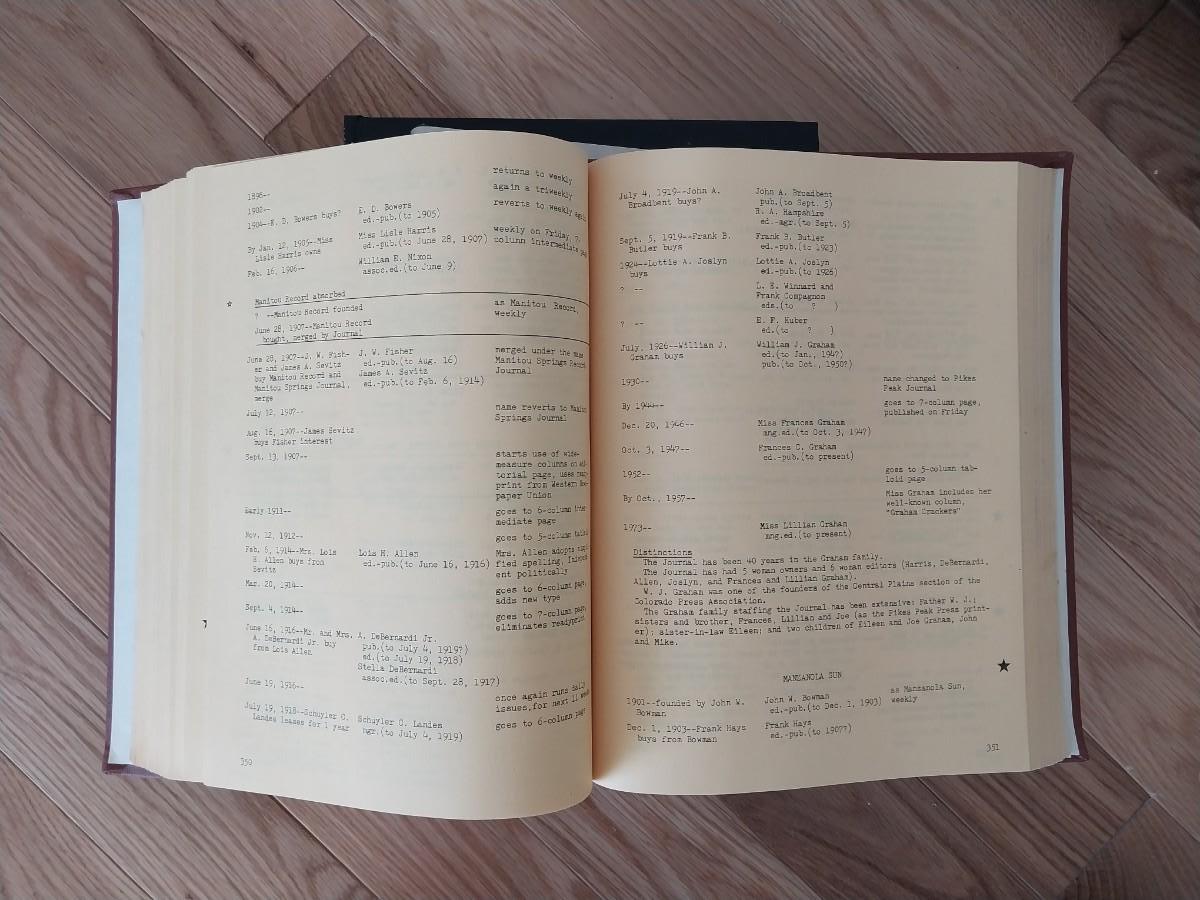 1896--
returns to weekly
1902--
again a triweekly
1904--E. D. Bowers buys?
E. D. Bowers
ed.-pub.(to 1905)
reverts to weekly
By Jan. 12, 1905--Miss
Lisle Harris owns
Miss Lisle Harris
ed.-pub.(to June 28, 1907)
weekly on Friday,
column intermediate
Feb. 16, 1906--
William E. Nixon
assoc.ed.(to June 9)
Manitou Record absorbed
? --Manitou Record founded
as Manitou Record,
weekly
June 28, 1907--Manitou Record
bought, merged by Journal
June 28, 1907--J. W. Fish-
er and James A. Sevitz
buy Manitou Record and
Manitou Springs Journal,
merge
J. W. Fisher
ed.-pub.(to Aug. 16)
James A. Sevitz
ed.-pub.(to Feb. 6, 1914)
merged under the
Manitou Springs Record
Journal
July 12, 1907--
name reverts to
Springs Journal
Aug. 16, 1907--James Sevitz
buys Fisher interest
Sept. 13, 1907--
starts use of wide-
measure columns on
torial page, uses
print from Western
paper Union
Early 1911--
goes to 6-column
mediate page
Nov. 12, 1912--
goes to 5-column
Feb. 6, 1914--Mrs. Lois
H. Allen buys from
Sevitz
Lois H. Allen
ed.-pub.(to June 16, 1916)
Mrs. Allen adopts
fied spelling,
ent politically
Mar. 20, 1914--
goes to 6-column page,
adds new type
Sept. 4, 1914--
goes to 7-column page,
eliminates readyprint
June 16, 1916--Mr. and Mrs.
A. DeBernardi Jr. buy
from Lois Allen
A. DeBernardi Jr.
pub.(to July 4, 1919?)
ed.(to July 19, 1918)
Stella DeBernardi
assoc.ed.(to Sept. 28, 1917)
June 19, 1916--
once again runs daily
issues,for next 11
July 19, 1918--Schuyler C.
Landes leases for 1 year
Schuyler C. Landes
mgr.(to July 4, 1919)
goes to 6-column page
350
July 4, 1919--John A.
Broadbent buys?
John A. Broadbent
pub.(to Sept. 5)
R. A. Hampshire
ed.-mgr.(to Sept. 5)
Sept. 5, 1919--Frank B.
Butler buys
Frank B. Butler
ed.-pub.(to 1923)
1924--Lottie A. Joslyn
buys
Lottie A. Joslyn
ed.-pub.(to 1926)
? --
L. E. Winnard and
Frank Compagnon
eds.(to ? )
? --
E. F. Huber
ed.(to ? )
July, 1926--William J.
Graham buys
William J. Graham
ed.(to Jan., 194?)
pub.(to Oct., 1950?)
1930--
name changed to Pikes
Peak Journal
By 1940--
goes to 7-column page,
published on Friday
Dec. 20, 1946--
Miss Frances Graham
mng.ed.(to Oct. 3, 1947)
Oct. 3, 1947--
Frances C. Graham
ed.-pub.(to present)
1952--
goes to 5-column tab-
loid page
By Oct., 1957--
Miss Graham includes her
well-known column,
"Graham Crackers"
1973--
Miss Lillian Graham
mng.ed.(to present)
Distinctions
The Journal has been 40 years in the Graham family.
The Journal has had 5 woman owners and 6 woman editors (Harris, DeBernardi,
Allen, Joslyn, and Frances and Lillian Graham).
W. J. Graham was one of the founders of the Central Plains section of the
Colorado Press Association.
The Graham family staffing the Journal has been extensive: Father W. J.;
sisters and brother, Frances, Lillian and Joe (as the Pikes Peak Press print-
er); sister-in-law Eileen; and two children of Eileen and Joe Graham, John
and Mike.
MANZANOLA SUN
1901--founded by John W.
Bowman
John W. Bowman
ed.-pub.(to Dec. 1, 1903)
as Manzanola Sun,
weekly
Dec. 1, 1903--Frank Hays
buys from Bowman
Frank Hays
ed.-pub.(to 1907?)
351